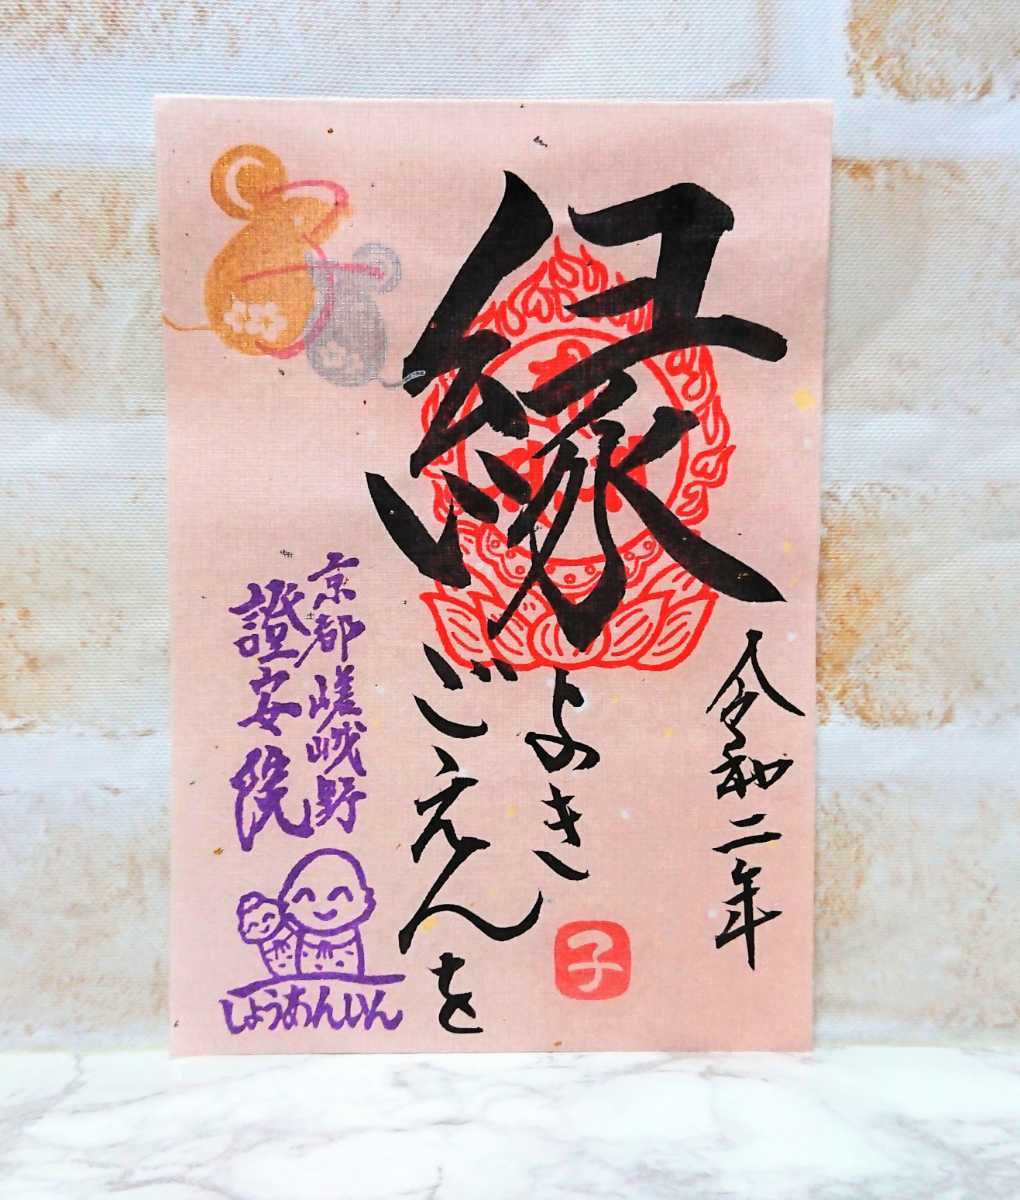 令和二年
縁
よき
ごえんを
子
京都嵯峨野
證安院
しょうあんじいん